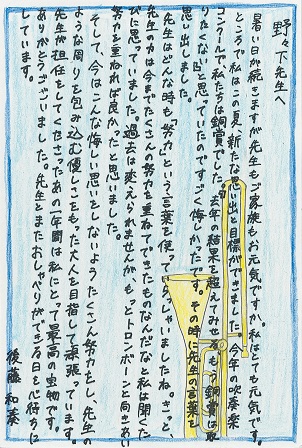 野々下先生へ
暑い日が続きますが先生もご家族もお元気ですか。私はとても元気です。
ところで私はこの夏、新たな思い出と目標ができました。今年の吹奏楽
コンクールで私たちは銅賞でした。去年の結果を超えてみせる、もう銅賞は取
りたくないと思っていたのですごく悔しかったです。その時に先生の言葉を
思い出しました。
先生はどんな時も「努力」という言葉を使っていらっしゃいましたね。きっと、
先生の力は今までたくさんの努力を重ねてできたものなんだなと私は聞くた
びに思っていました。過去は変えられませんが、もっとトロンボーンと向きあい
努力を重ねれば良かったと思いました。
そして、今はこんな悔しい思いをしないようたくさん努力をし、先生の
ような周りを包み込む優しさをもった大人を目指して頑張っています。
先生が担任をしてくださったあの一年間は私にとって最高の宝物です。
ありがとうございました。先生とまたおしゃべりができる日を心待ちに
しています。
後藤和奏